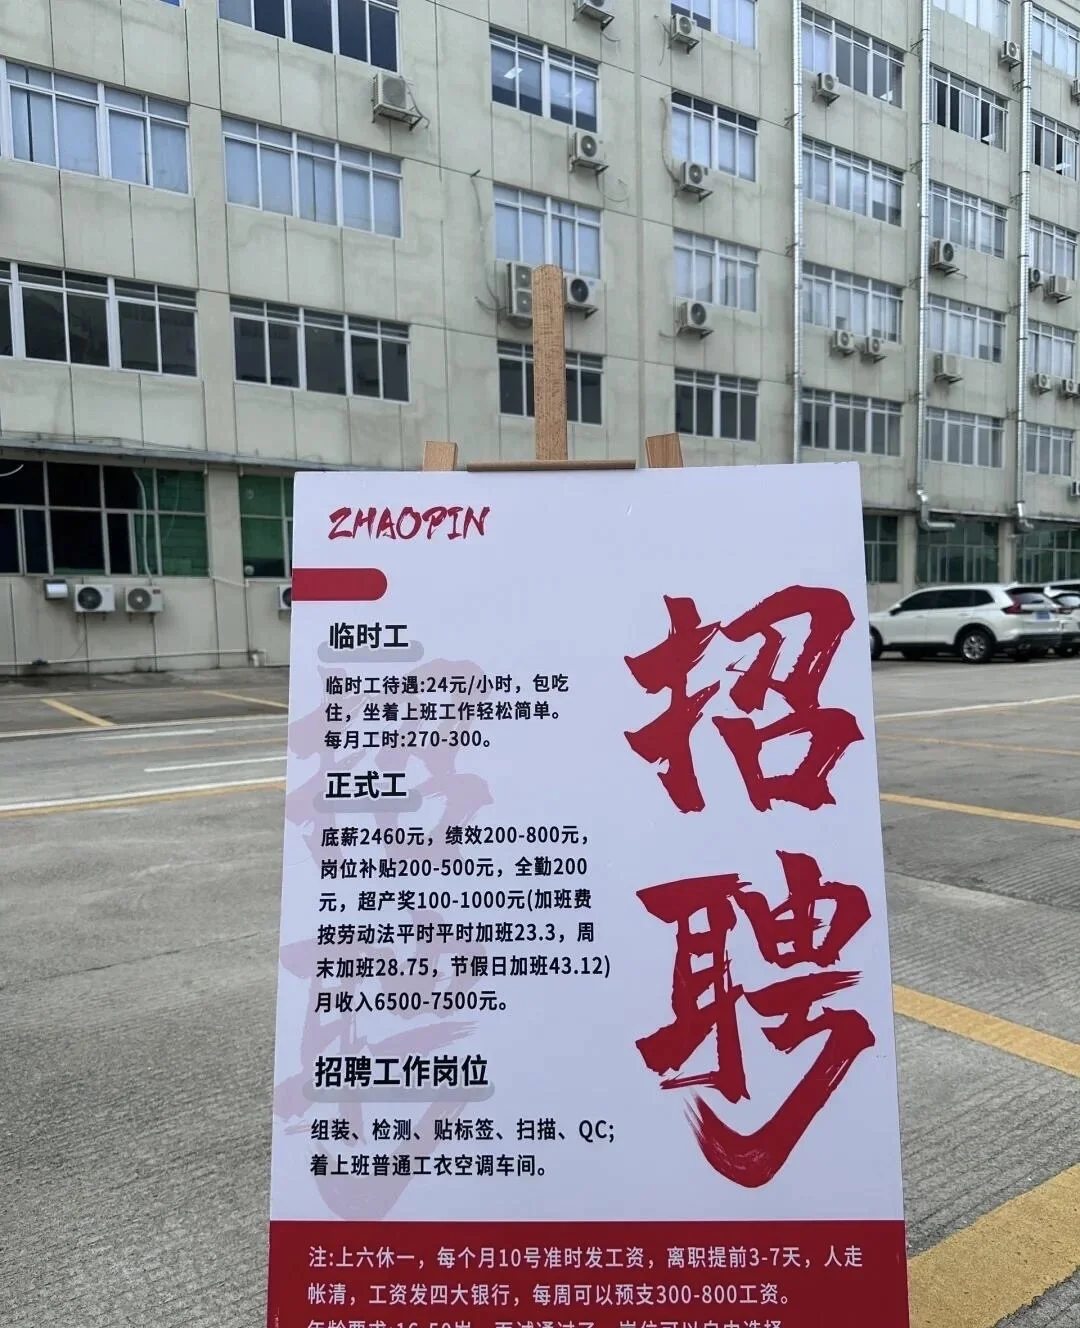 ZHAOPIN
招聘
临时工
临时工待遇:24元/小时，包吃
住，坐着上班工作轻松简单。
每月工时:270-300。
正式工
底薪2460元，绩效200-800元，
岗位补贴200-500元，全勤200
元，超产奖100-1000元(加班费
按劳动法平时平时加班23.3，周
末加班28.75，节假日加班43.12)
月收入6500-7500元。
招聘工作岗位
组装、检测、贴标签、扫描、QC;
着上班普通工衣空调车间。
注:上六休一，每个月10号准时发工资，离职提前3-7天，人走
帐清，工资发四大银行，每周可以预支300-800工资。